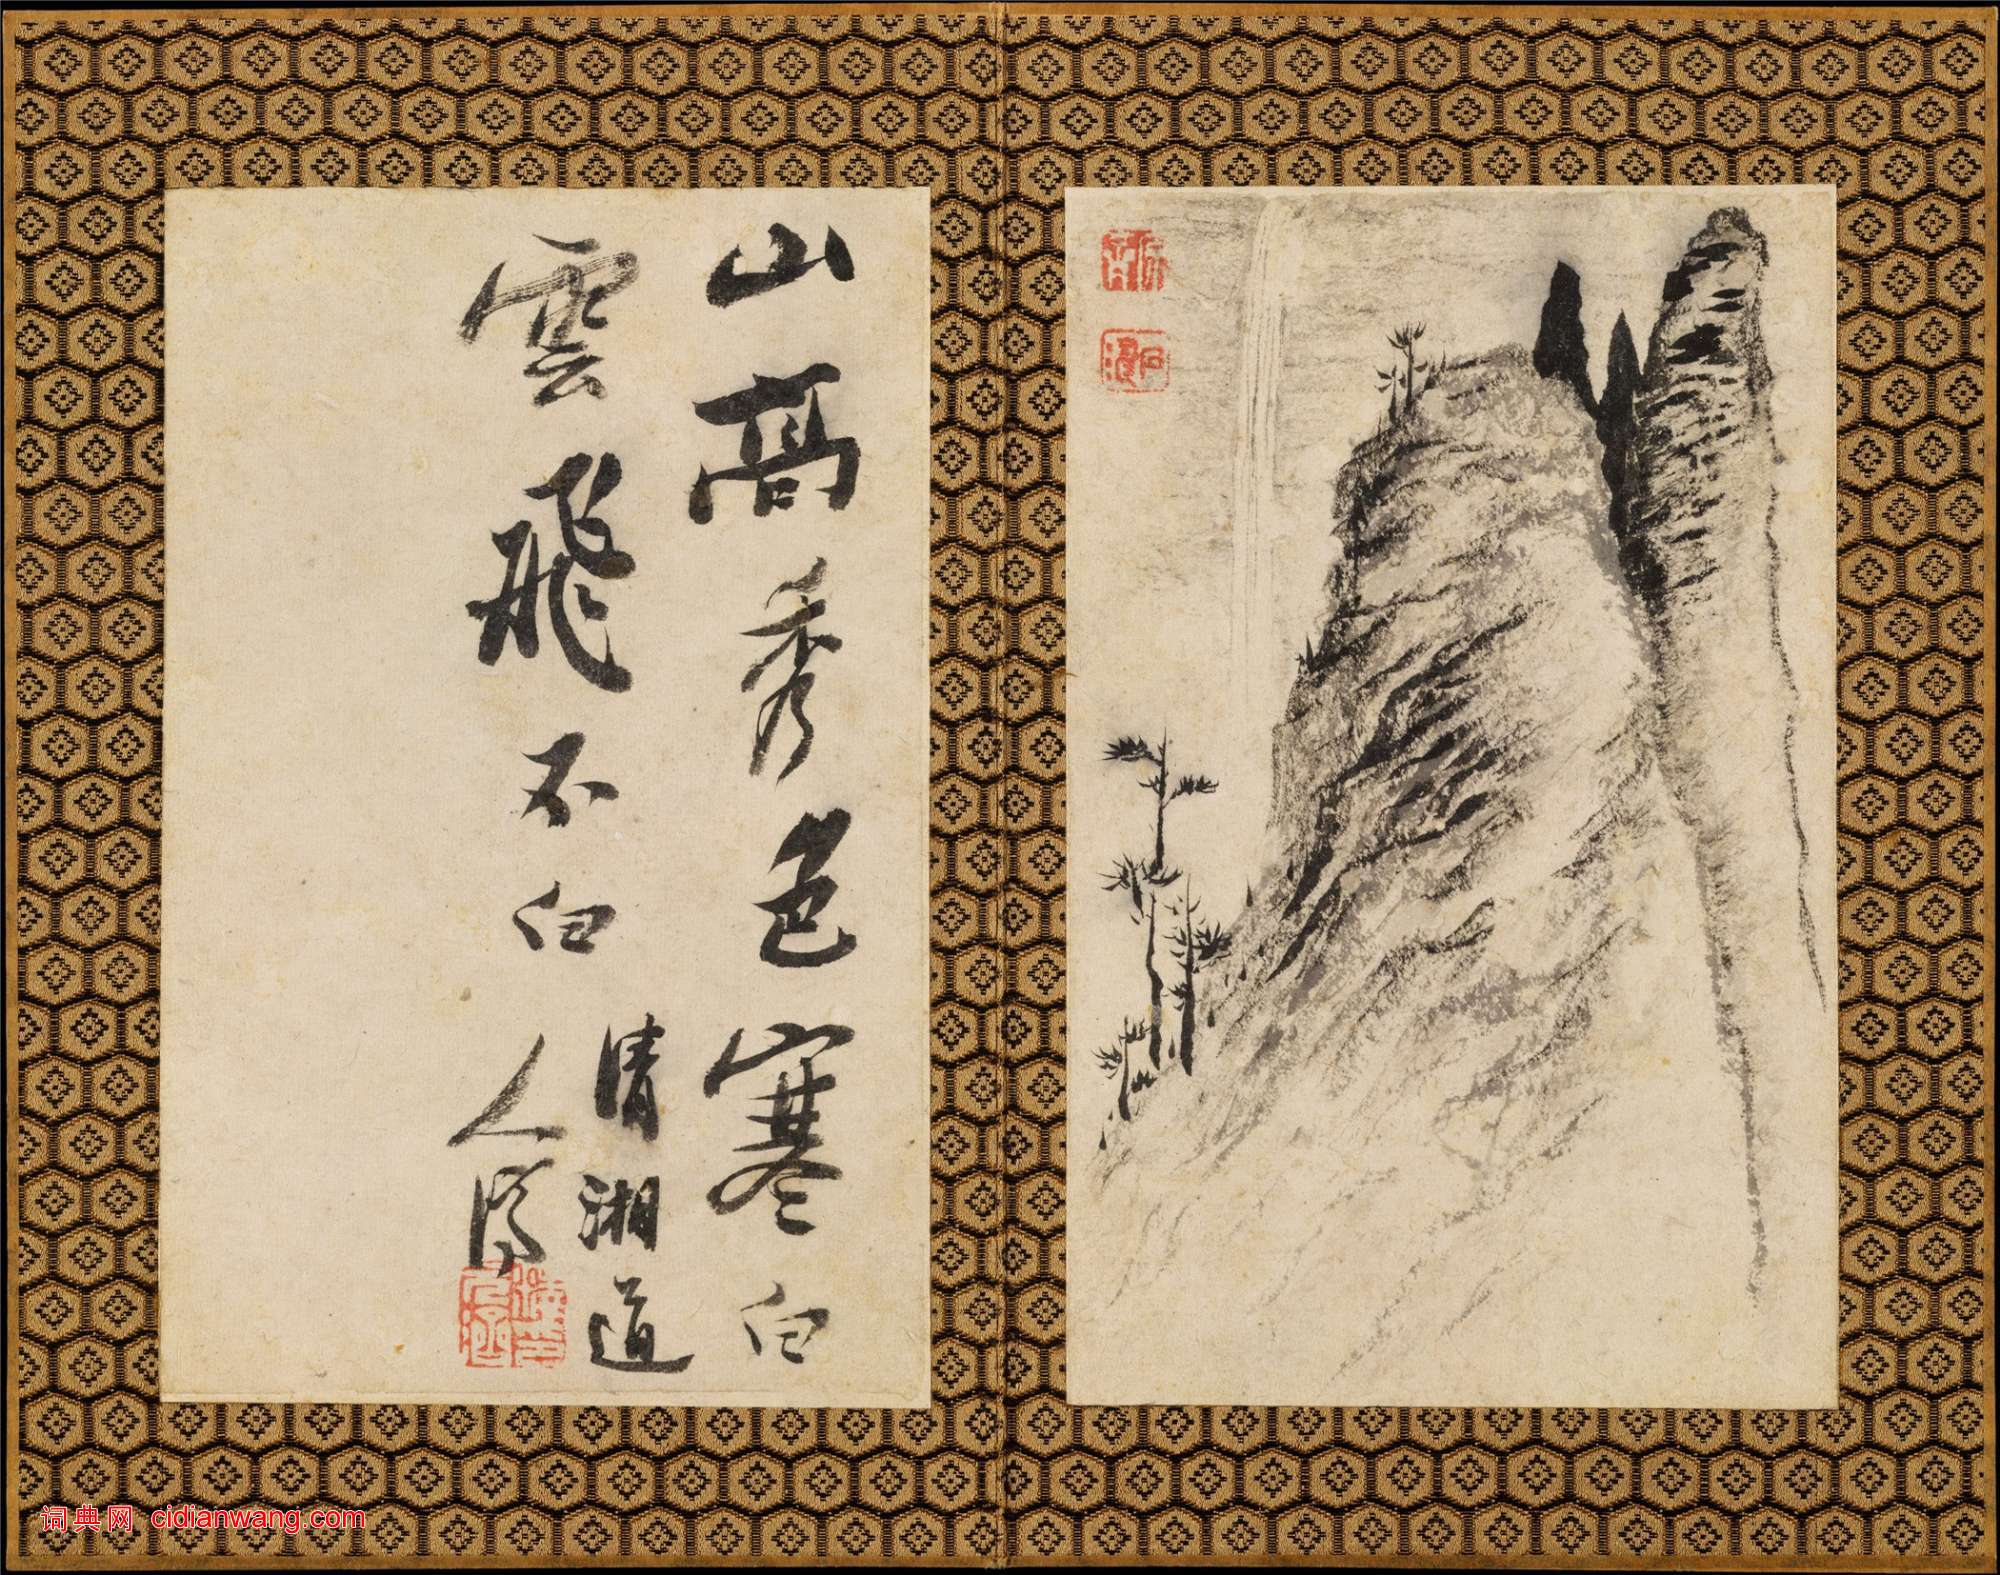 山高秀色寒白
雲飛不白
清湘道
人濟
词典网 cidianwang.com